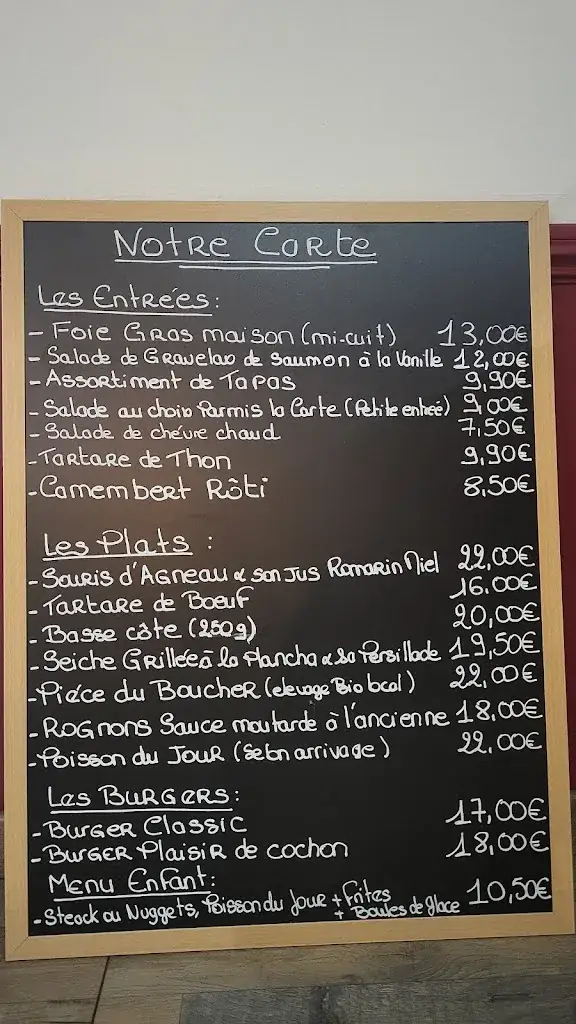 Notre Carte
Les Entrées :
- Foie Gras maison (mi-cuit) 13,00€
- Salade de Gravelax de saumon à la Vanille 12,00€
- Assortiment de Tapas 9,90€
- Salade au choix Parmis la Carte (Petite entreé) 9,00€
- Salade de chévre chaud 7,50€
- Tartare de Thon 9,90€
- Camembert Rôti 8,50€
Les Plats :
- Souris d'Agneau & son Jus Romarin Miel 22,00€
- Tartare de Boeuf 16.00€
- Basse côte (250g) 20,00€
- Seiche Grillée à la Plancha & Sa Persillade 19,50€
- Piéce du Boucher (elevage Bio local) 22,00€
- Rognons Sauce moutarde à l'ancienne 18,00€
- Poisson du Jour (Selon arrivage) 22.00€
Les Burgers :
- Burger Classic 17,00€
- Burger Plaisir de cochon 18,00€
Menu Enfant :
- Steack ou Nuggets, Poisson du Jour + Frites 10,50€
+ Boules de glace